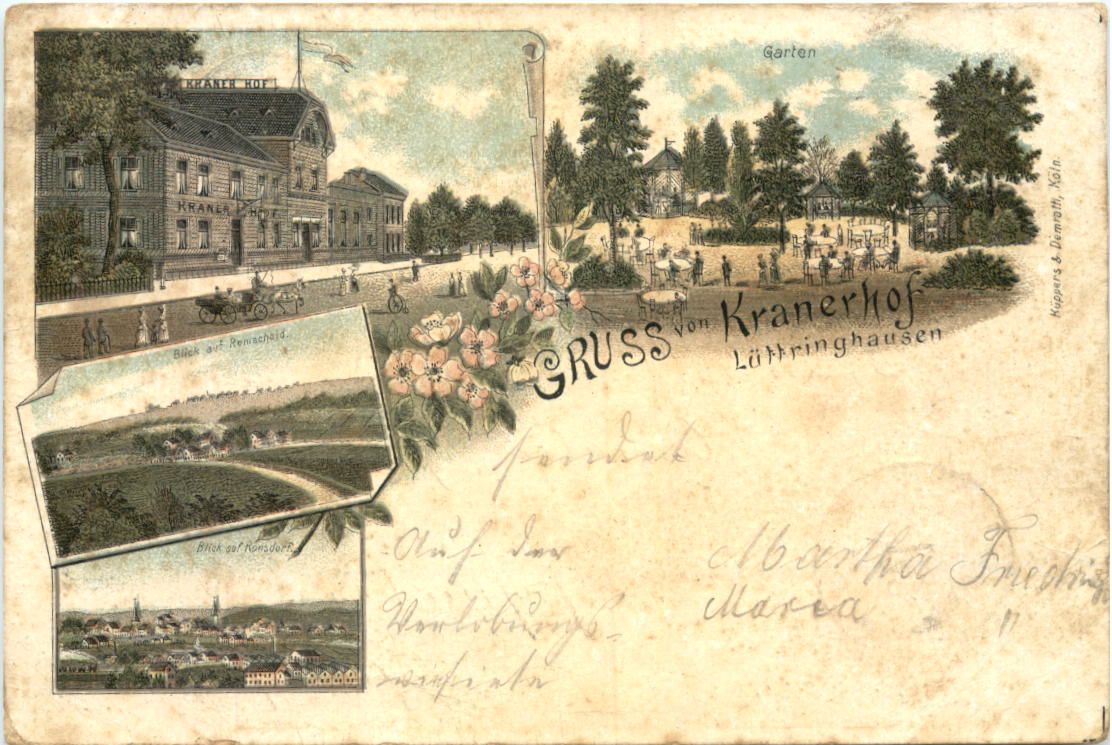 KRANER HOF
KRANER HOF
Garten
GRUSS von Kranerhof
Lüttringhausen
Blick auf Remscheid.
Blick auf Ronsdorf.
Küppers & Demrath, Köln.
sendet
Auf der
Verlobungs-
visite
Martha
Maria "